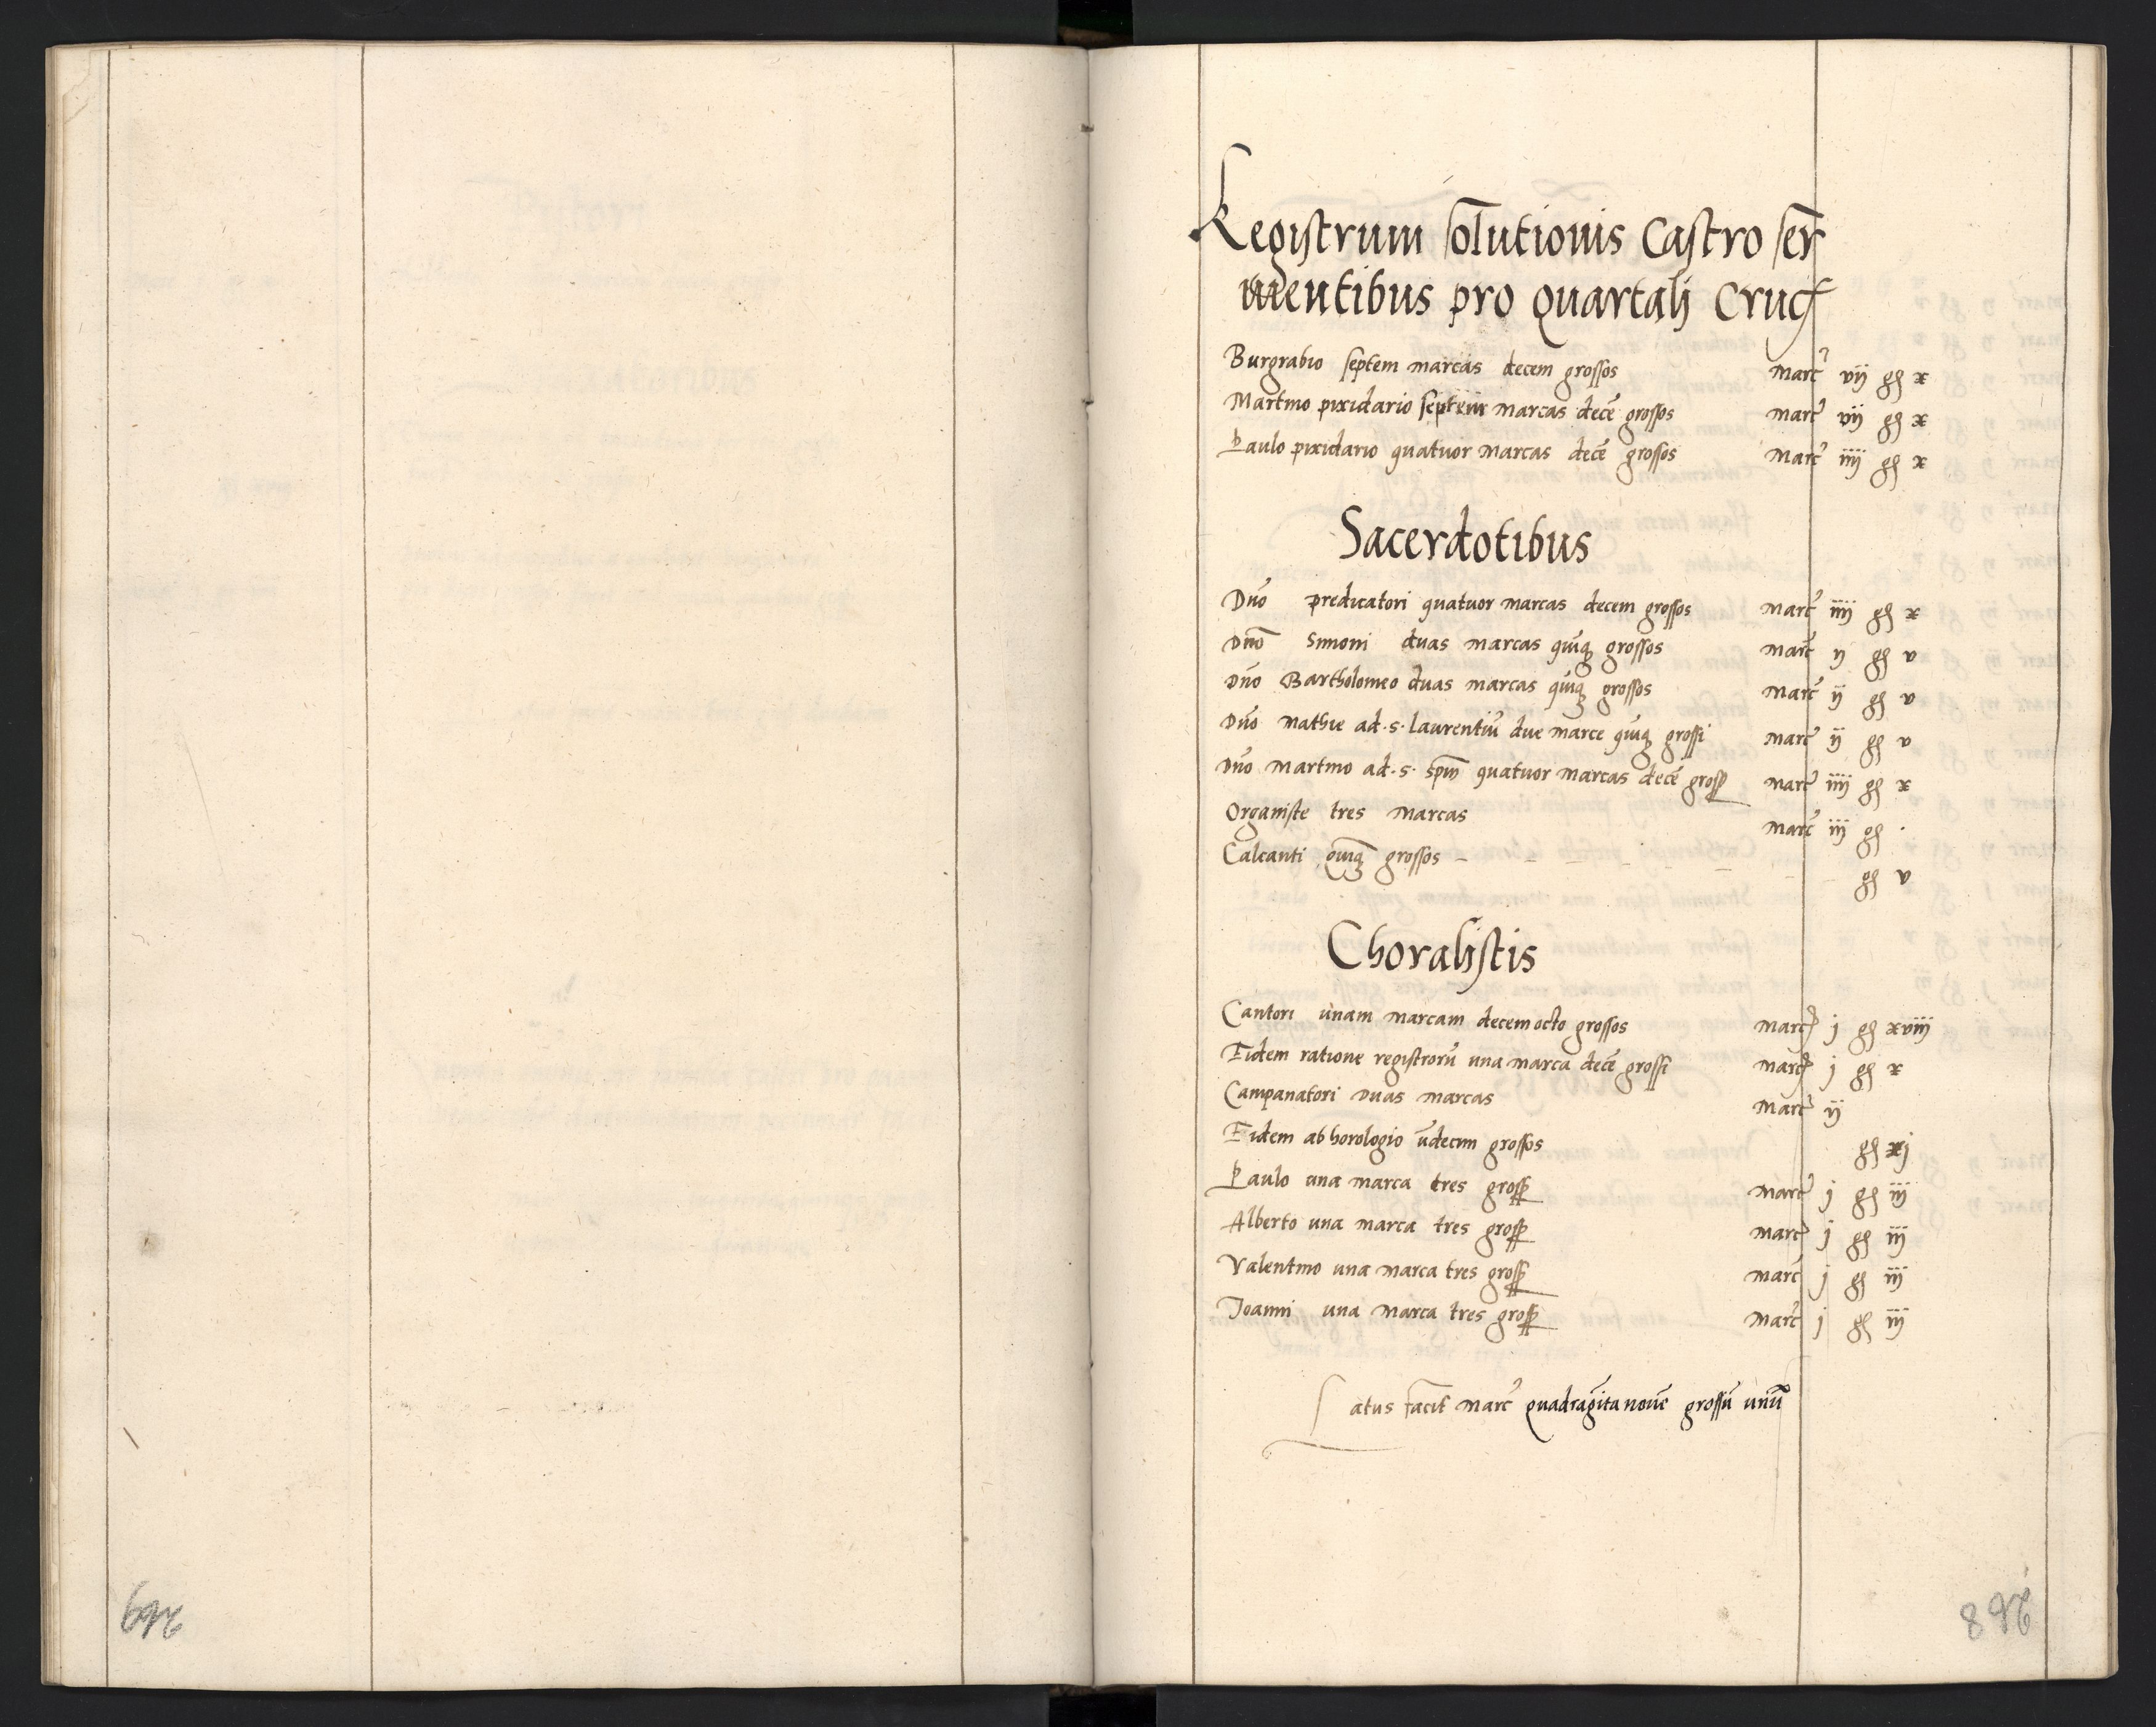 Registrum solutionis Castro ser
uientibus pro quartali Cruc
Burgrabio septem marcas decem grossos marc vij gg x
Martino pixidario septem marcas decē grossos marc vij gg x
Paulo pixidario quatuor marcas decē grossos marc iiij gg x
Sacerdotibus
Dn̄o predicatori quatuor marcas decem grossos marc iiij gg x
Dn̄o Simoni duas marcas quīq grossos marc ij gg v
Dn̄o Bartholomeo duas marcas quīq grossos marc ij gg v
Dn̄o Mathie ad .s. laurentiū due marce quīq grossi marc ij gg v
Dn̄o Martino ad .s. spm̄ quatuor marcas decē gross marc iiij gg x
Organiste tres marcas marc iij gg .
Calcanti quīq grossos gg v
Choralistis
Cantori unam marcam decemocto grossos marc j gg xviij
Eidem ratione registrorū una marca decē grossi marc j gg x
Campanatori duas marcas marc ij
Eidem ab horologio ūdecim grossos gg xj
Paulo una marca tres gross marc j gg iij
Alberto una marca tres gross marc j gg iij
Valentino una marca tres gross marc j gg iij
Joanni una marca tres gross marc j gg iij
Latus facit marc quadragīta nouē grossū unū